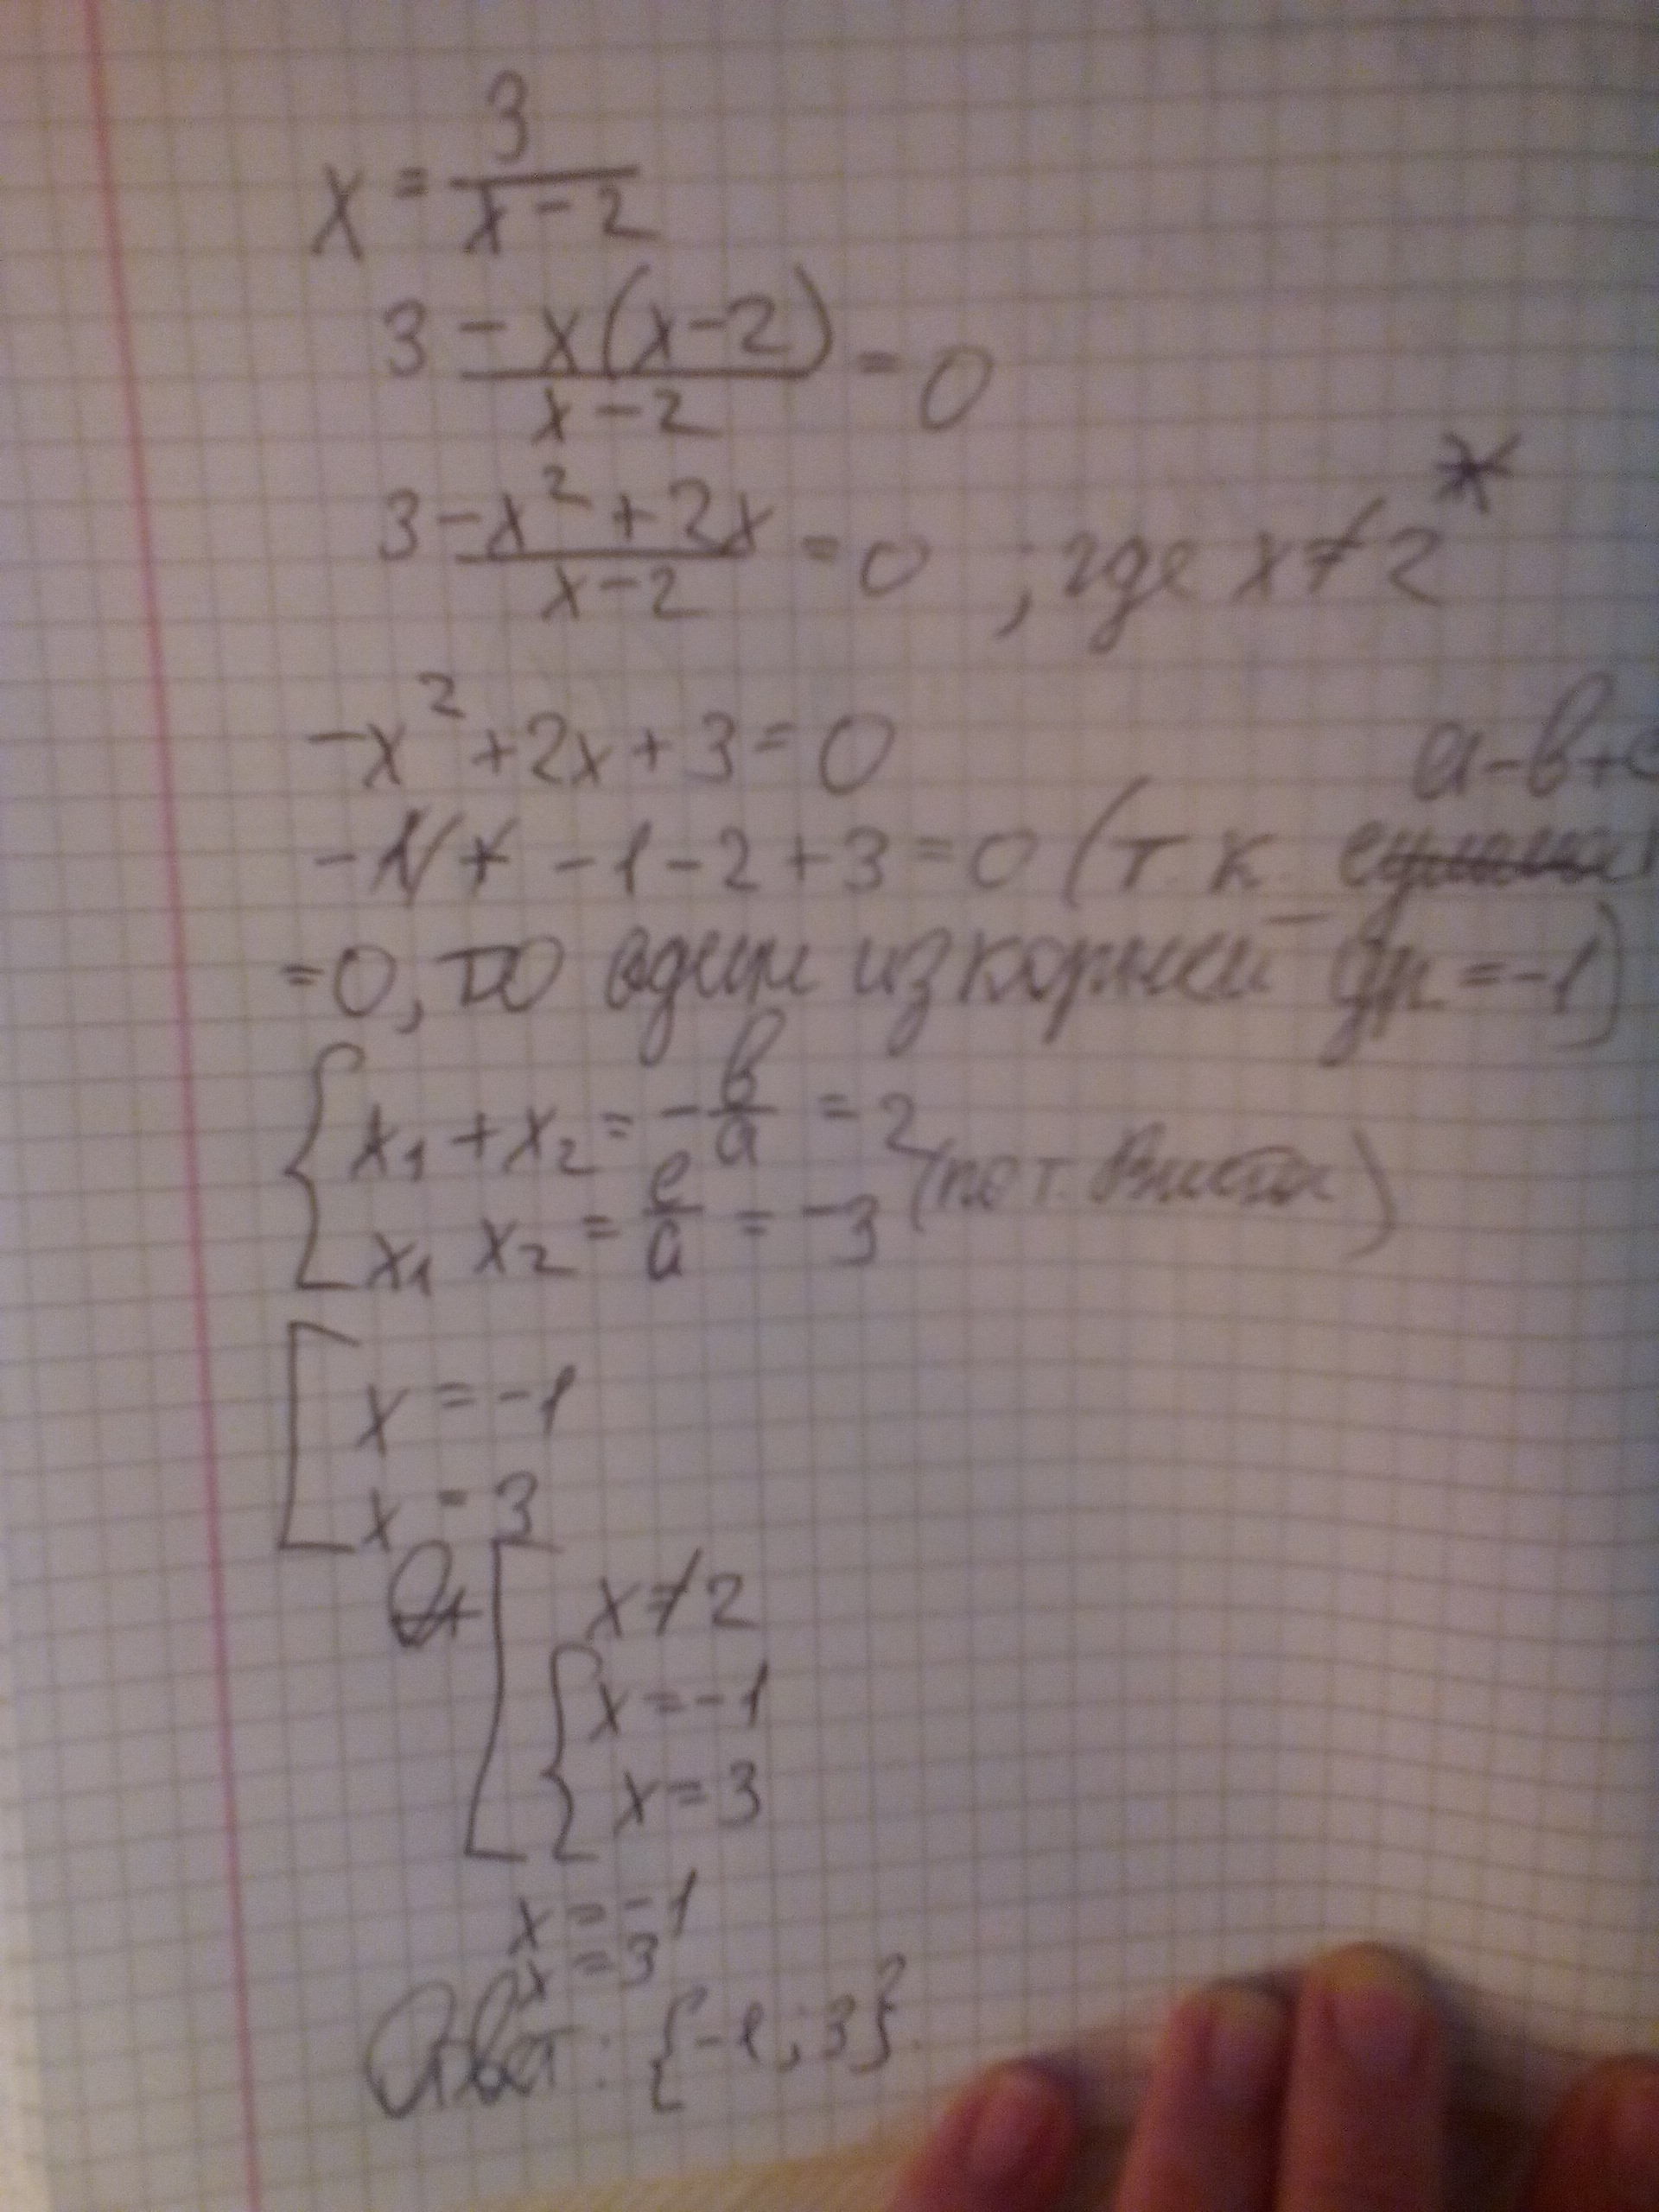 x = 3/(x-2)
3 - x(x-2)/(x-2) = 0
3 - x² + 2x/(x-2) = 0 ; где x ≠ 2*
-x² + 2x + 3 = 0
a-b+c
-1 - 2 + 3 = 0 (т.к.
= 0, то один из корней = -1)
{ x₁ + x₂ = -b/a = 2
x₁ x₂ = c/a = -3 (по т. Виета)
[ x = -1
x = 3
[ x ≠ 2
{ x = -1
x = 3
x = -1
x = 3
Ответ: {-1; 3}.